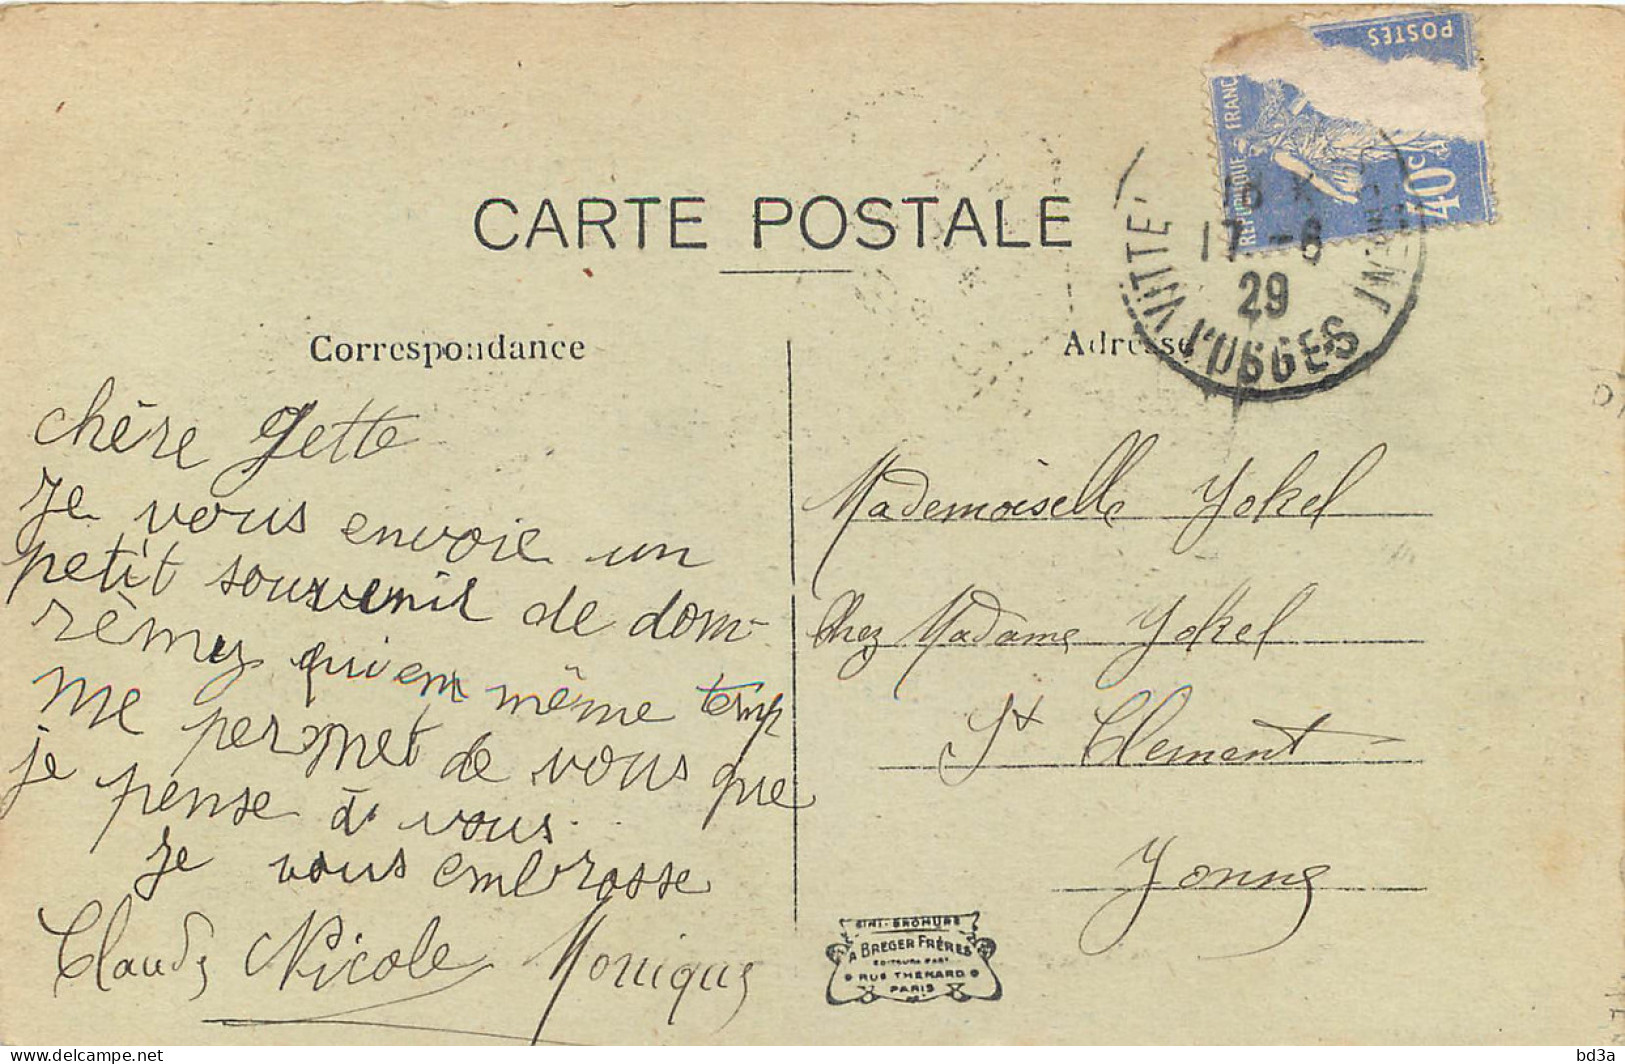 POSTES
REPUBLIQUE FRANC
40c
17 -8
29
VITTE
VOSGES
CARTE POSTALE
Correspondance
Adresse
chère Gette
Je vous envoie un
petit souvenir de dom-
rèmy qui en même temp
me permet de vous que
je pense à vous.
Je vous embrasse
Claude Nicole Monique
Mademoiselle Yokel
Chez Madame Yokel
St Clement
Yonne
SIMI-BROMURE
A BREGER FRÈRES
EDITEURS D'ART
RUE THENARD
PARIS
bd3a